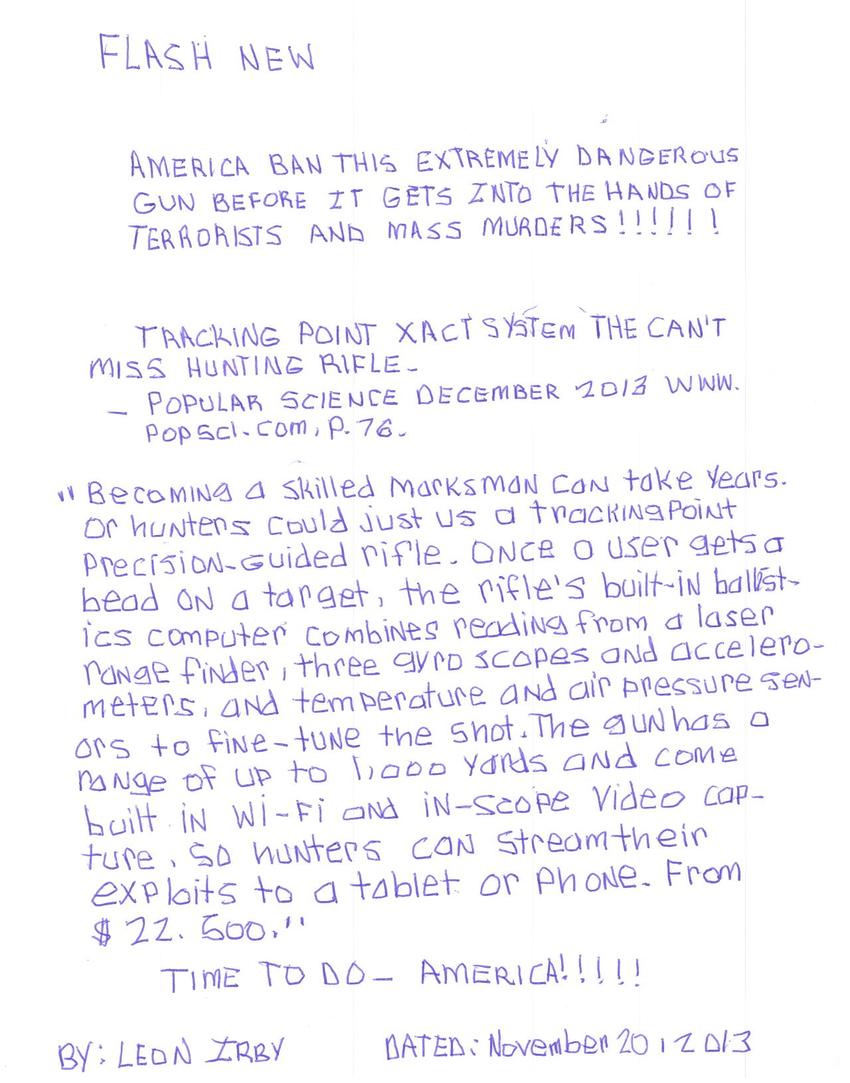 FLASH NEW
AMERICA BAN THIS EXTREMELY DANGEROUS
GUN BEFORE IT GETS INTO THE HANDS OF
TERRORISTS AND MASS MURDERS!!!!!!
TRACKING POINT XACT SYSTEM THE CAN'T
MISS HUNTING RIFLE-
- POPULAR SCIENCE DECEMBER 2013 WWW.
POPSCI.COM, P. 76.
"Becoming a skilled marksman can take years.
Or hunters could just us a trackingPoint
Precision-Guided rifle. Once a user gets a
bead on a target, the rifle's built-in ballist-
ics computer combines reading from a laser
range finder, three gyro scopes and accelero-
meters, and temperature and air pressure sen-
ors to fine-tune the shot. The gun has a
range of up to 1,000 yards and come
built in Wi-Fi and in-scope video cap-
ture, so hunters can stream their
exploits to a tablet or phone. From
$22.500."
TIME TO DO- AMERICA!!!!!
BY: LEON IRBY DATED: November 20, 2013